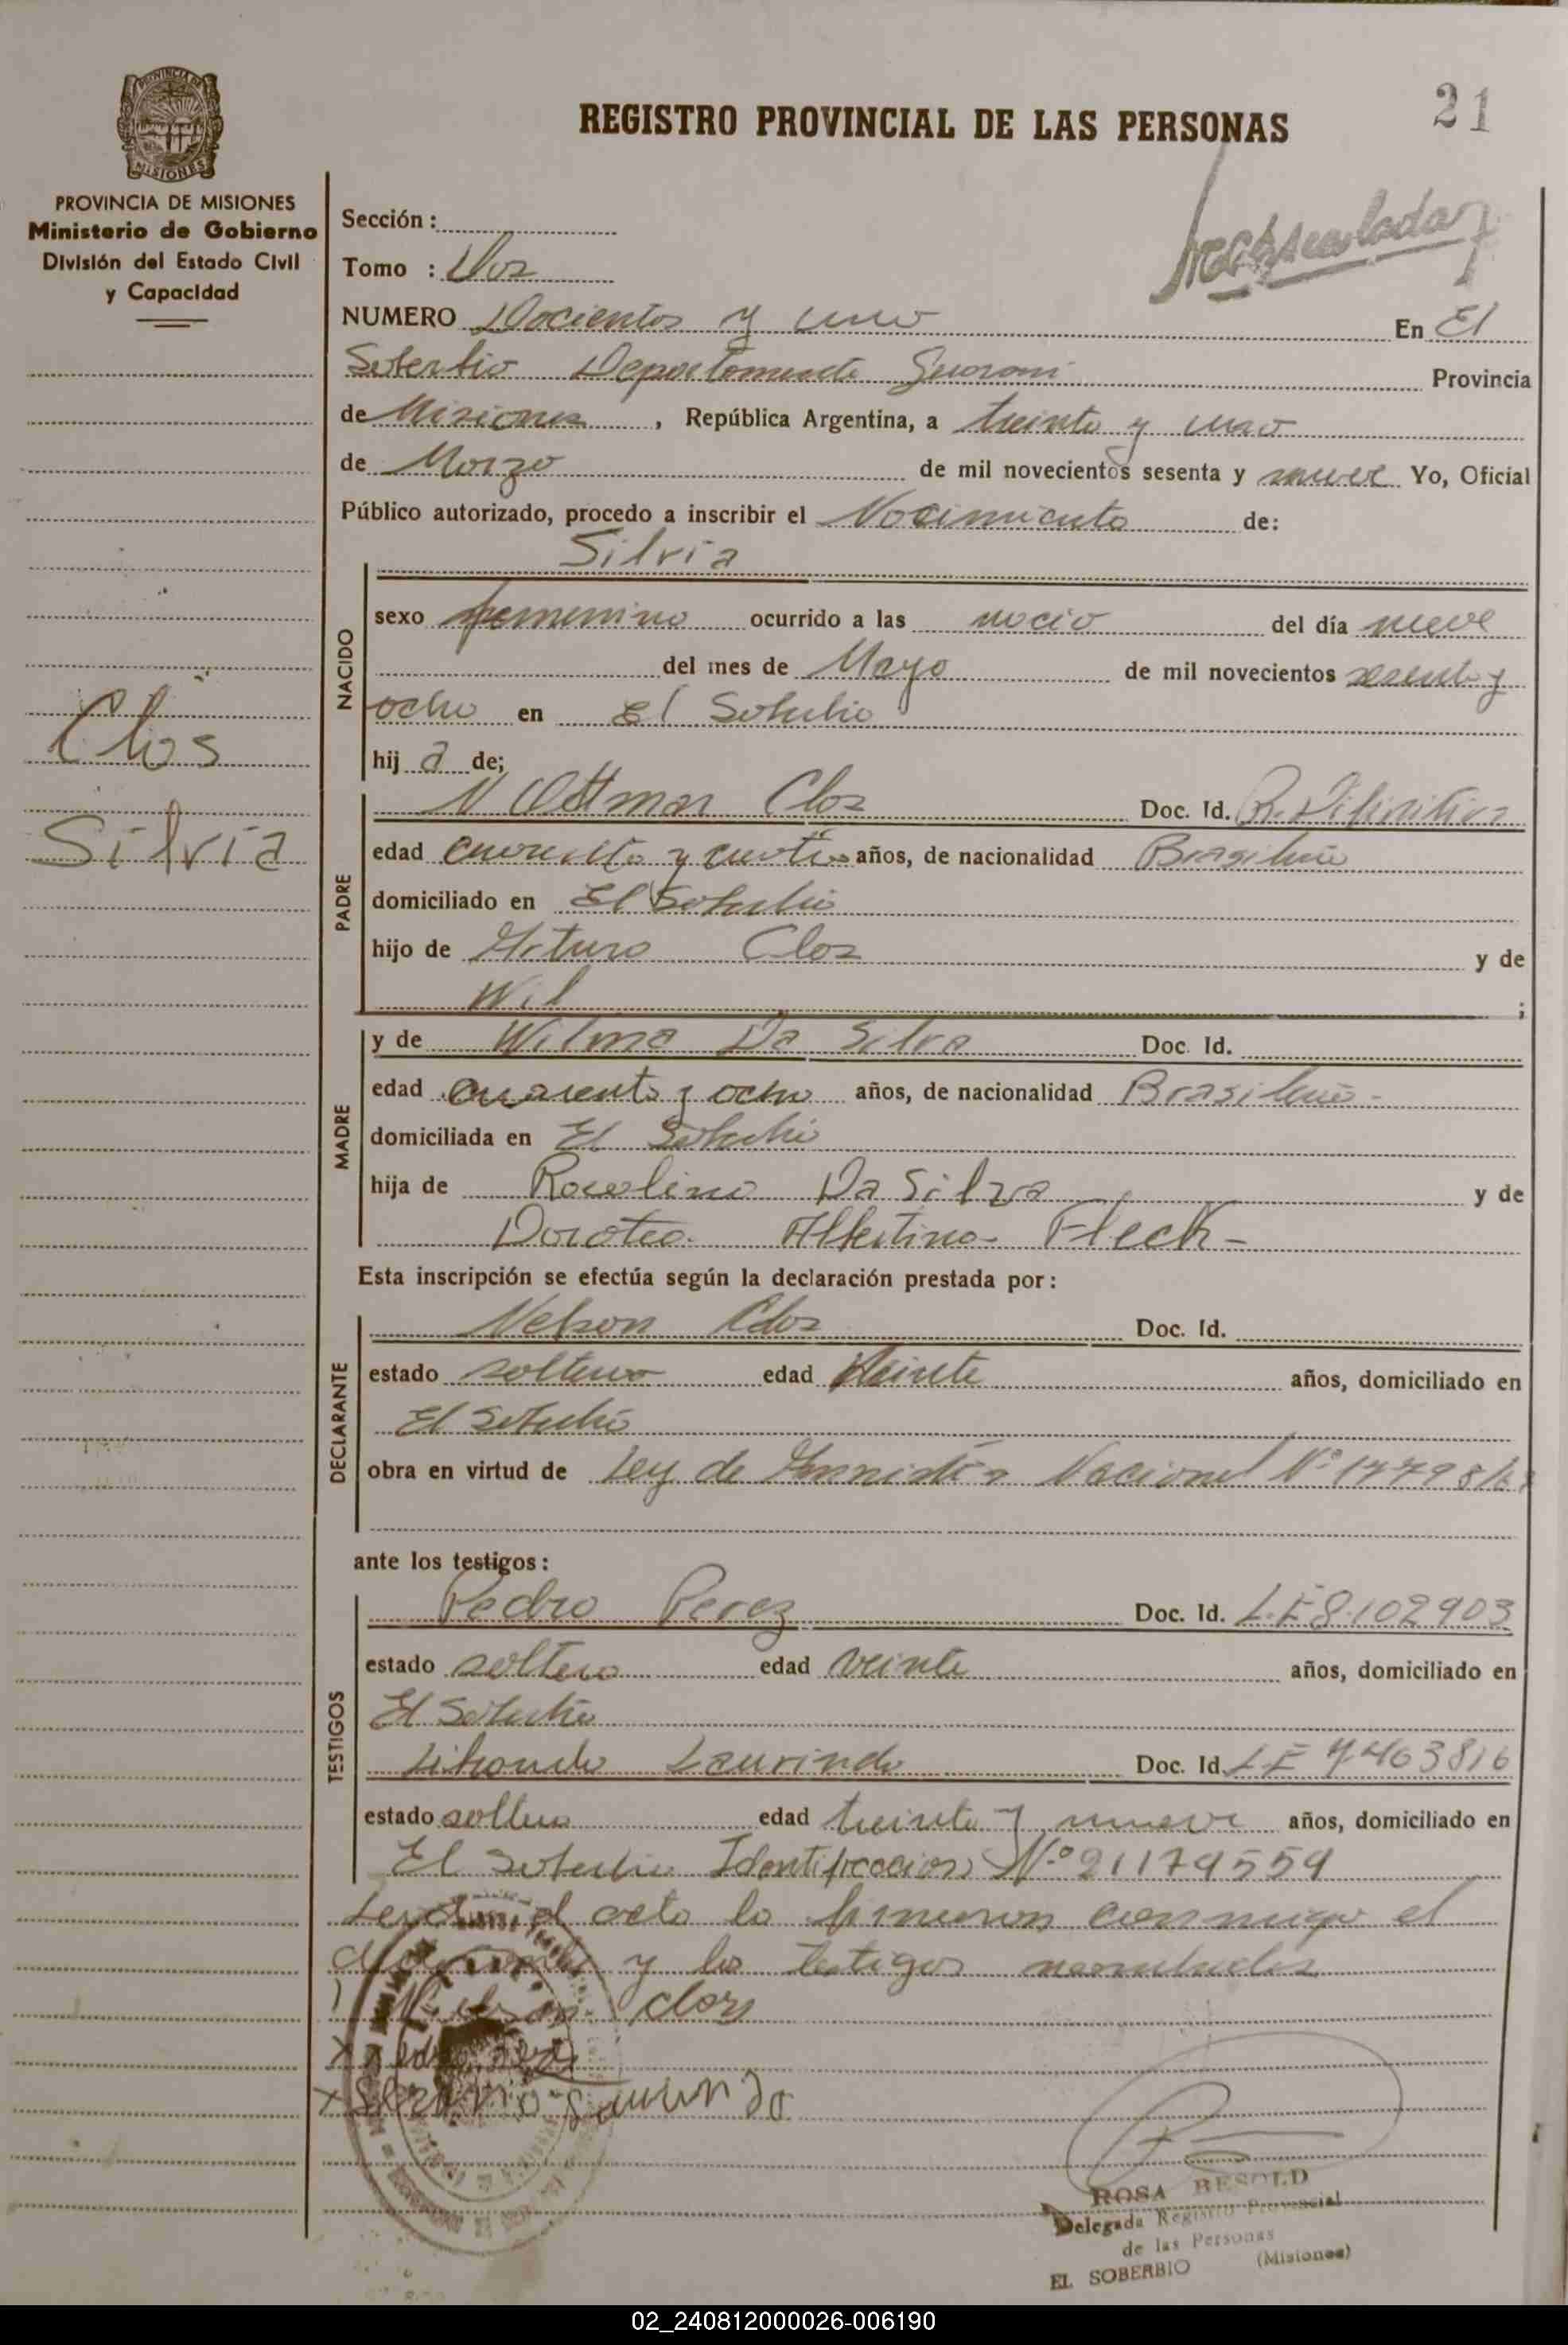 REGISTRO PROVINCIAL DE LAS PERSONAS
21
PROVINCIA DE MISIONES
MISIONES
PROVINCIA DE MISIONES
Ministerio de Gobierno
División del Estado Civil
y Capacidad
Sección :
Tomo : Dos
NUMERO Docientos y uno En El
Soberbio Departamento Guarani Provincia
de Misiones , República Argentina, a treinta y uno
de Marzo de mil novecientos sesenta y nueve Yo, Oficial
Público autorizado, procedo a inscribir el Nacimiento de:
Clos
Silvia
NACIDO
Silvia
sexo femenino ocurrido a las del día nueve
del mes de Mayo de mil novecientos sesenta y
ocho en El Soberbio
hij a de;
PADRE
Ottmar Clos Doc. Id.
edad cuarenta y años, de nacionalidad Brasileño
domiciliado en El Soberbio
hijo de Arturo Clos y de
;
MADRE
y de Wilma Da Silva Doc. Id.
edad cuarenta y ocho años, de nacionalidad Brasileña-
domiciliada en El Soberbio
hija de Da Silva y de
Dorotea Albertina Fleck-
Esta inscripción se efectúa según la declaración prestada por :
DECLARANTE
Nelson Clos Doc. Id.
estado soltero edad Veinte años, domiciliado en
El Soberbio
obra en virtud de Ley de Amnistía Nacional Nº
ante los testigos :
TESTIGOS
Pedro Perez Doc. Id. L.E 8.102903
estado soltero edad veinte años, domiciliado en
El Soberbio
Laurindo Doc. Id. L E 7463816
estado soltero edad treinta y nueve años, domiciliado en
El Soberbio Identificacion Nº 21179559
el acta la firmaron conmigo el
declarante y los testigos
Nelson Clos
ROSA BESOLD
Delegada Registro Provincial
de las Personas
EL SOBERBIO (Misiones)
02_240812000026-006190